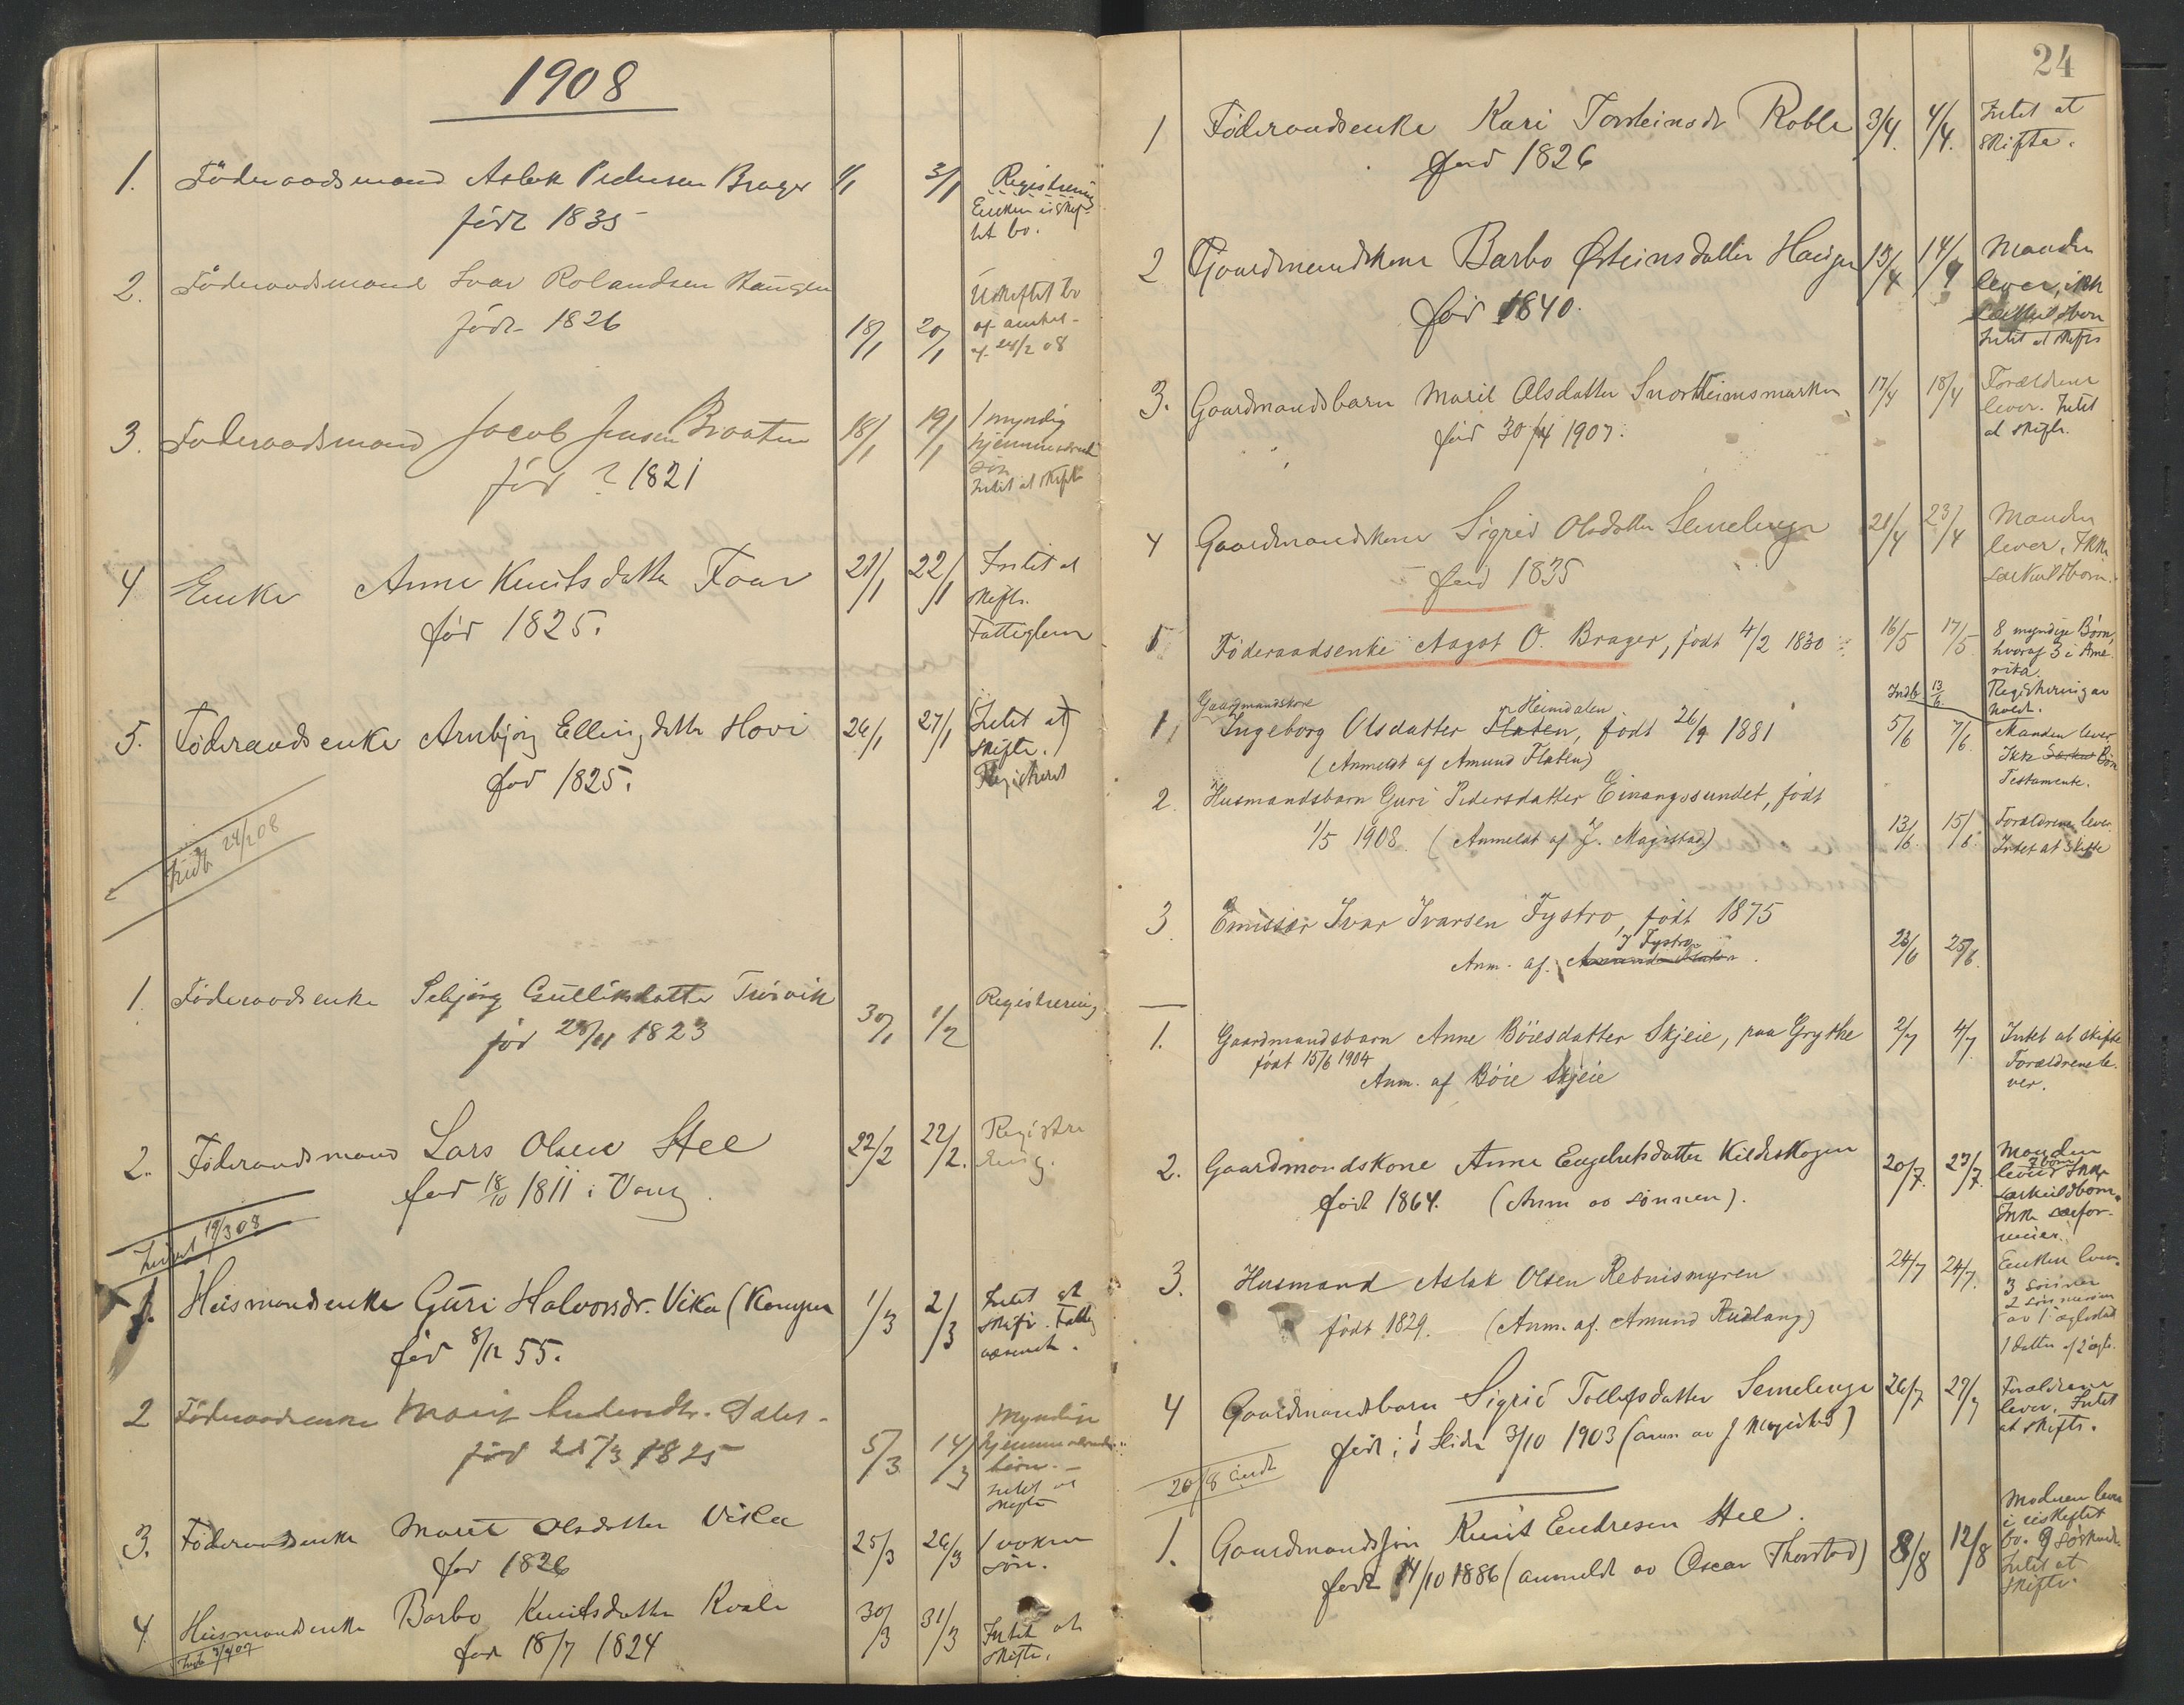 1908
1. Föderaadsmand Aslak Pedersen Brager 1/1 3/1 Registrering
født 1835 Enken i uskif-
tet bo.
2. Föderaadsmand Ivar Rolandsen Haugen Uskiftet bo
født 1826 18/1 20/1 af
24/2 08
3. Föderaadsmand Jacob Jensen Braaten 18/1 19/1 1 myndig
født ? 1821 hjemmeværende
søn
Intet at skifte
4 Enke Anne Knutsdatter Foss 21/1 22/1 Intet at
før 1825. skifte.
Fattiglem
5. Föderaadsenke Arnbjørg Ellingsdatter Hovi 26/1 27/1 (Intet at
fød 1825. skifte.)
Registreret
Indb. 24/2 08
1. Föderaadsenke Sebjørg Gulliksdatter Turvik 30/1 1/2 Registrering
fød 28/11 1823
2. Föderaadsmand Lars Olsen Hee 22/2 22/2. Registre
fød 18/10 1811 i Vang ring.
19/3 08
1. Husmandsenke Guri Halvorsdr. Vika (Kongen 1/3 2/3 Intet at
fød 8/12 55. skifte. Fattig
væsenet.
2 Föderaadsenke Marit
fød 25/3 1825 5/3 14/3 Myndige
hjemmeværende
børn. -
Intet at
skifte
3. Föderaadsenke Marit Olsdatter Vika 25/3 26/3 1 voksen
fød 1826 søn.
4 Husmandsenke Barbo Knutsdatter Kvale 30/3 31/3 Intet at
fød 18/7 1824 skifte.
24
1 Föderaadsenke Kari Torsteinsdr Roble 3/4. 4/4. Intet at
fød 1826 skifte.
2 Gaardmandskone Barbo Østeinsdatter Haugen 13/4 14/4 Manden
fød 1840. lever, ikke
særkuldsbørn
Intet at skifte
3. Gaardmandsbarn Marit Olsdatter Snortheimsmarken 17/4 18/4 Forældrene
fød 30/4 1907. lever. Intet
at skifte.
4 Gaardmandskone Sigrid Olsdatter Semelenge 21/4 23/4 Manden
fød 1835 lever, Ikke
særkuldsbørn.
5 Föderaadsenke Aagot O. Brager, født 4/2 1830 16/5 17/5 8 myndige Børn,
hvoraf 3 i Ame-
rika.
Indb 13/6. Registrering av
holdt.
Gaardmandskone Heimdalen
1, Ingeborg Olsdatter Flaten, født 26/9 1881 5/6 7/6 Manden lever.
(Anmeldt af Amund Flaten) Ikke Særku Børn
Testamente.
2. Husmandsbarn Guri Pedersdatter Einangssundet, født
1/5 1908. (Anmeldt af J. Magistad) 13/6. 15/6. Forældrene lever.
Intet at Skifte
3. Emissær Ivar Ivarsen Fystro, født 1875
J Fystro
Anm. af. 23/6 25/6.
1. Gaardmandsbarn Anne Böiesdatter Skjeie, paa Grythe 2/7 4/7 Intet at skifte
født 15/6 1904 Forældrene le-
Anm. af Böie Skjeie ver.
2. Gaardmandskone Anne Engebretsdatter Kildeskogen 20/7. 23/7. Manden
født 1864. (Anm av sønnen). lever Ikke
særkuldbørn.
Ikke særfor-
muer.
3. Husmand Aslak Olsen Rebnismyren 24/7 24/7. Enken lever.
født 1829. (Anm. af. Amund Rudlang) 3 sönner
av 1 ægteskab
1 datter af 2 ægt.
4 Gaardmandsbarn Sigrid Tollefsdatter Semelenge 26/7 27/7 Forældrene
født i ö Slidre 3/10 1903 (anm av J Magistad) lever, Intet
at skifte.
20/8 indb
1. Gaardmandssøn Knut Endresen Hee. 8/8 12/8 Moderen lever
født 14/10 1886 (anmeldt av Oscar Thorstad) i uskiftet
bo. 9 søskende
Intet at
skifte.